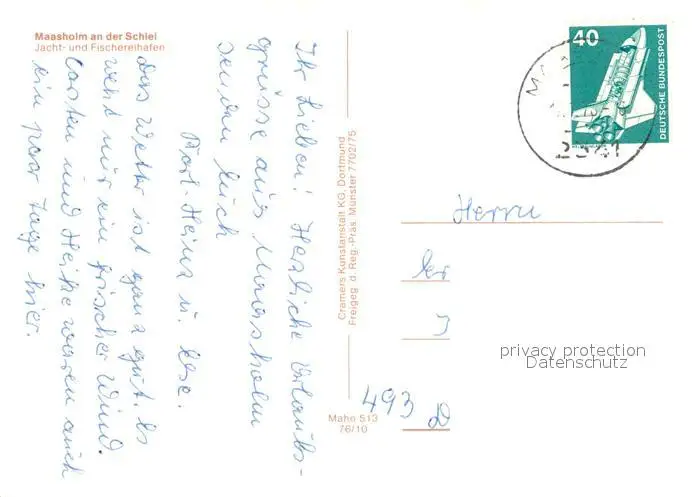 Maasholm an der Schlei
Jacht- und Fischereihafen
Ihr Lieben! Herzliche Urlaubs-
grüsse aus Maasholm
senden Euch
Karl-Heinz u. Else.
Das Wetter ist ganz gut. Es
weht nur ein frischer Wind.
Carsten und Heike waren auch
ein paar Tage hier.
Cramers Kunstanstalt KG, Dortmund
Freigeg. d. Reg.-Präs. Münster 7702/75
Mahn 513
76/10
40
DEUTSCHE BUNDESPOST
2341
Herrn
493 D
privacy protection
Datenschutz